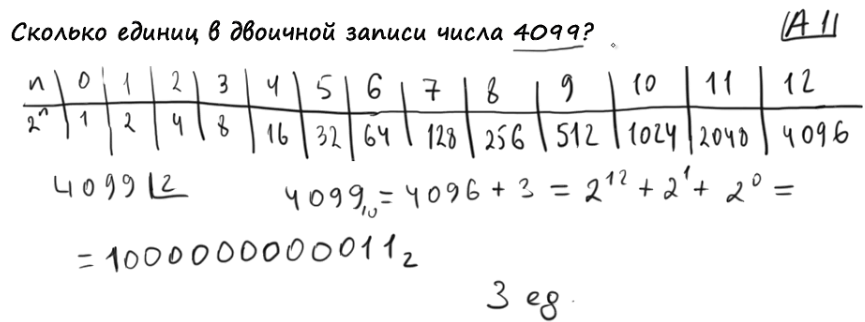 Сколько единиц в двоичной записи числа 4099? A1
n 0 1 2 3 4 5 6 7 8 9 10 11 12
2ⁿ 1 2 4 8 16 32 64 128 256 512 1024 2048 4096
4099 2 4099₁₀ = 4096 + 3 = 2¹² + 2¹ + 2⁰ =
= 1000000000011₂
3 ед.